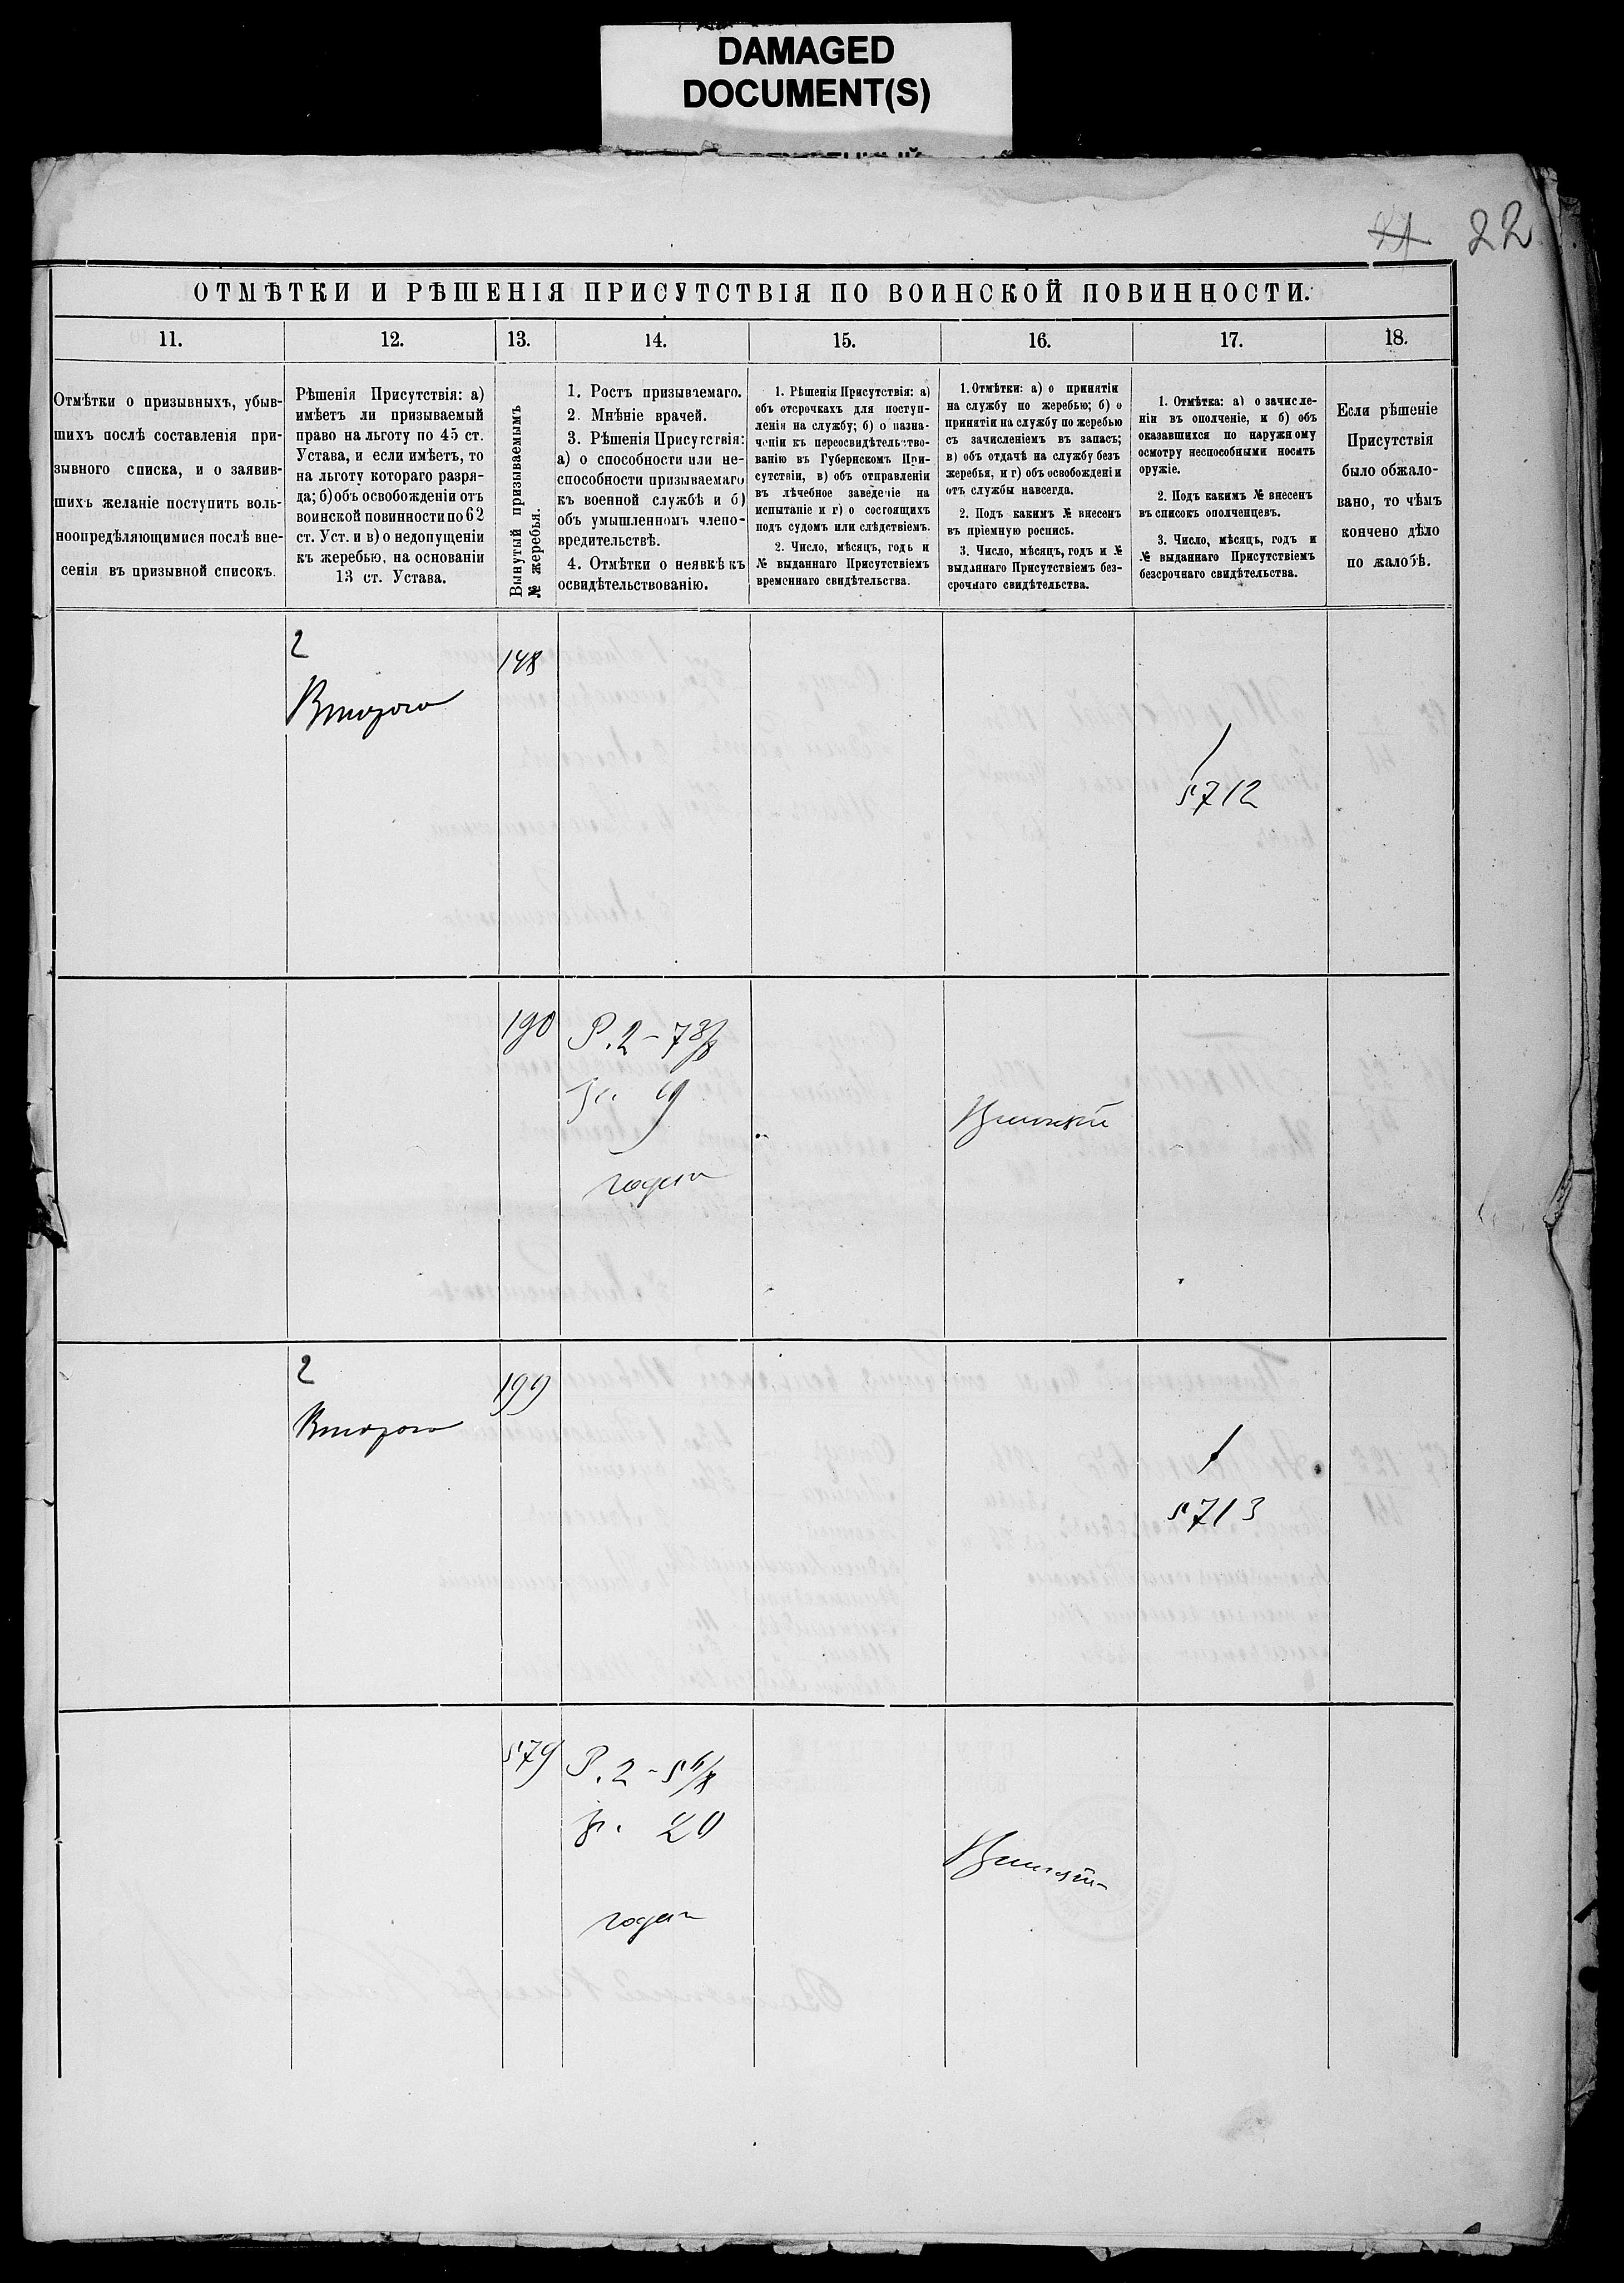 DAMAGED
DOCUMENT(S)
22
ОТМѢТКИ И РѢШЕНІЯ ПРИСУТСТВІЯ ПО ВОИНСКОЙ ПОВИННОСТИ.
11.
12.
13.
14.
15.
16.
17.
18.
Отмѣтки о призывныхъ, убыв-
шихъ послѣ составленія при-
зывного списка, и о заявив-
шихъ желаніе поступить воль-
ноопредѣляющимися послѣ вне-
сенія въ призывной списокъ.
Рѣшенія Присутствія: а)
имѣетъ ли призываемый
право на льготу по 45 ст.
Устава, и если имѣетъ, то
на льготу котораго разря-
да; б) объ освобожденіи отъ
воинской повинности по 62
ст. Уст. и в) о недопущеніи
къ жеребью, на основаніи
13 ст. Устава.
Вынутый призываемымъ
№ жеребья.
1. Ростъ призываемаго.
2. Мнѣніе врачей.
3. Рѣшенія Присутствія:
а) о способности или не-
способности призываемаго
къ военной службѣ и б)
объ умышленномъ члено-
вредительствѣ.
4. Отмѣтки о неявкѣ къ
освидѣтельствованію.
1. Рѣшенія Присутствія: а)
объ отсрочкахъ для поступ-
ленія на службу; б) о назна-
ченіи къ переосвидѣтельство-
ванію въ Губернскомъ При-
сутствіи, в) объ отправленіи
въ лѣчебное заведеніе на
испытаніе и г) о состоящихъ
подъ судомъ или слѣдствіемъ.
2. Число, мѣсяцъ, годъ и
№ выданнаго Присутствіемъ
временнаго свидѣтельства.
1. Отмѣтки: а) о принятіи
на службу по жеребью; б) о
принятіи на службу по жеребью
съ зачисленіемъ въ запасъ;
в) объ отдачѣ на службу безъ
жеребья, и г) объ освобожденіи
отъ службы навсегда.
2. Подъ какимъ № внесенъ
въ пріемную роспись.
3. Число, мѣсяцъ, годъ и №
выданнаго Присутствіемъ без-
срочнаго свидѣтельства.
1. Отмѣтка: а) о зачисле-
ніи въ ополченіе, и б) объ
оказавшихся по наружному
осмотру неспособными носить
оружіе.
2. Подъ какимъ № внесенъ
въ списокъ ополченцевъ.
3. Число, мѣсяцъ, годъ и
№ выданнаго Присутствіемъ
безсрочнаго свидѣтельства.
Если рѣшеніе
Присутствія
было обжало-
вано, то чѣмъ
кончено дѣло
по жалобѣ.
2
Второго
148
5712
190
Р. 2 - 7 3/8
19
годенъ
2
Второго
199
5713
579
Р. 2 - 5 6/8
20
годенъ